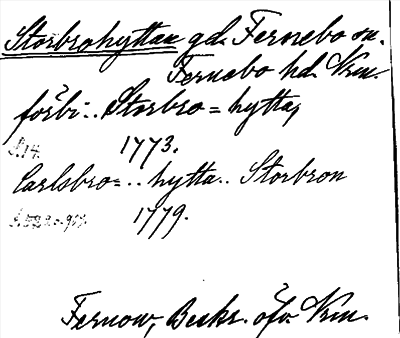 Storbrohyttan gd. Fernebo sn.
Fernebo hd. Vrm.
förbi.. Storbro=hytta,
s. 14. 1773.
Carlsbro=.. hytta.. Storbron
1779.
Fernow, Beskr. öfv. Vrm.